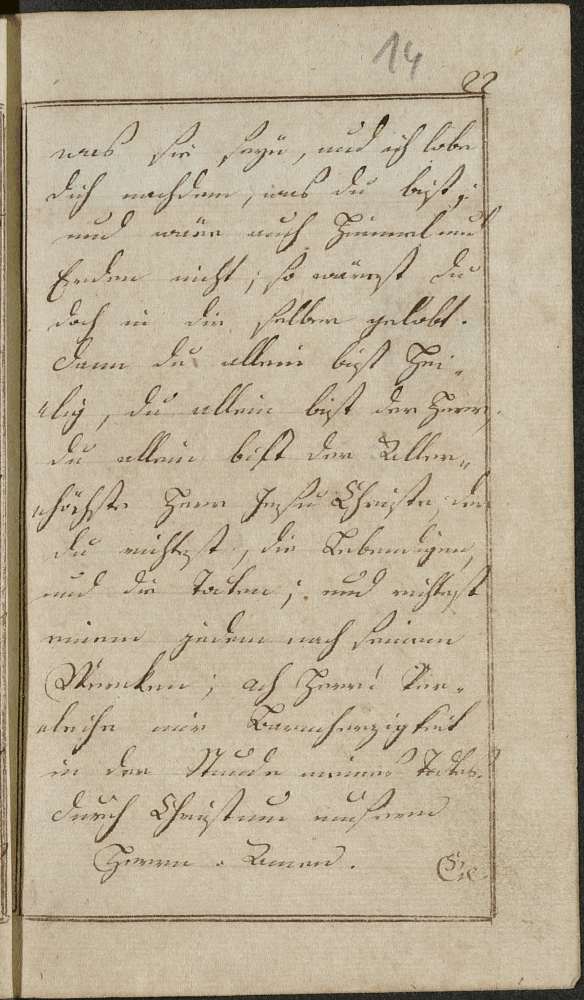 14
22
was sie seyn, und ich lobe
dich nachdem, was du bist;
und wäre auch Himmel und
Erden nicht, so wärest du
doch in dir selber gelobt.
Dann du allein bist Hei„
„lig, du allein bist der Herr,
du allein bist der Aller„
„höchste Herr Jesu Christe, der
du richtest, die Lebendigen,
und die Toten; und richtest
einem jedem nach seinen
Wercken; ach Herr! Ver„
„leihe mir Barmherzigkeit
in der Stunde meines Todes.
durch Christum unseren
Herrn. Amen.